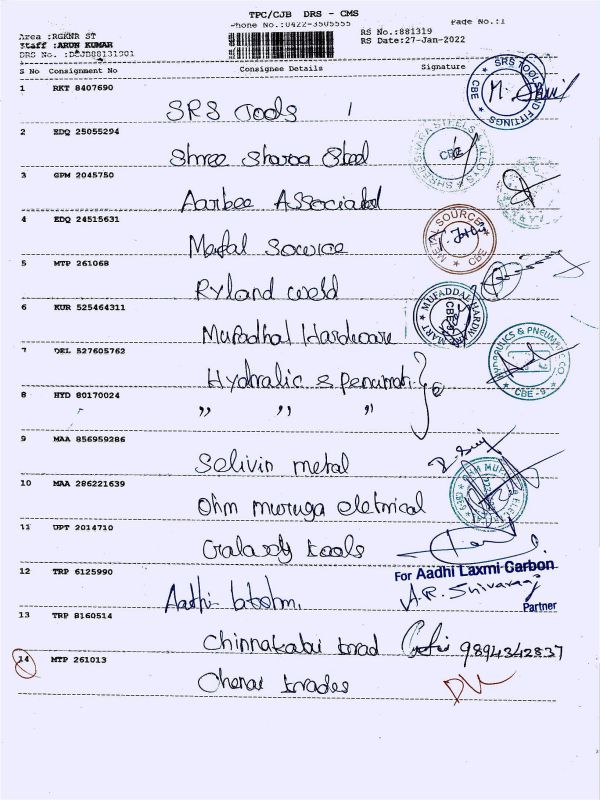 TPC/CJB DRS - CMS
Phone No.:0422-3505555
Page No.:1
Area :RGKNR ST
RS No.:881319
Staff :ARUN KUMAR
RS Date:27-Jan-2022
S No Consignment No Consignee Details Signature
1 RKT 8407690
SRS Tools
2 EDQ 25055294
Shree Sharoa Steel
3 GPM 2045750
Aarbee Associated
4 EDQ 24515631
Metal Sowrice
5 MTP 261068
Ryland weld
6 KUR 525464311
Mufadhal Hardware
7 DEL 527605762
Hydralic &
8 HYD 80170024
,, ,, ,,
9 MAA 856959286
Selivin metal
10 MAA 286221639
Ohm muruga eletrical
11 UPT 2014710
Galaxdy tools
12 TRP 6125990
Aathi
For Aadhi Laxmi Carbon
A.R. Shivaraj
Partner
13 TRP 8160514
Chinnakabi trad 9894342837
14 MTP 261013
Chenai trades
SRS TOOLS AND FITTINGS
CBE
METAL SOURCE
CBE
MUFADDAL HARDWARE MART
CBE-9
HYDRAULICS & PNEUMATIC CO
CBE - 9